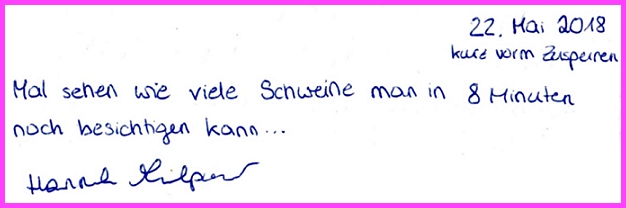 22. Mai 2018
kurz vorm Zusperren
Mal sehen wie viele Schweine man in 8 Minuten
noch besichtigen kann...
Hannah